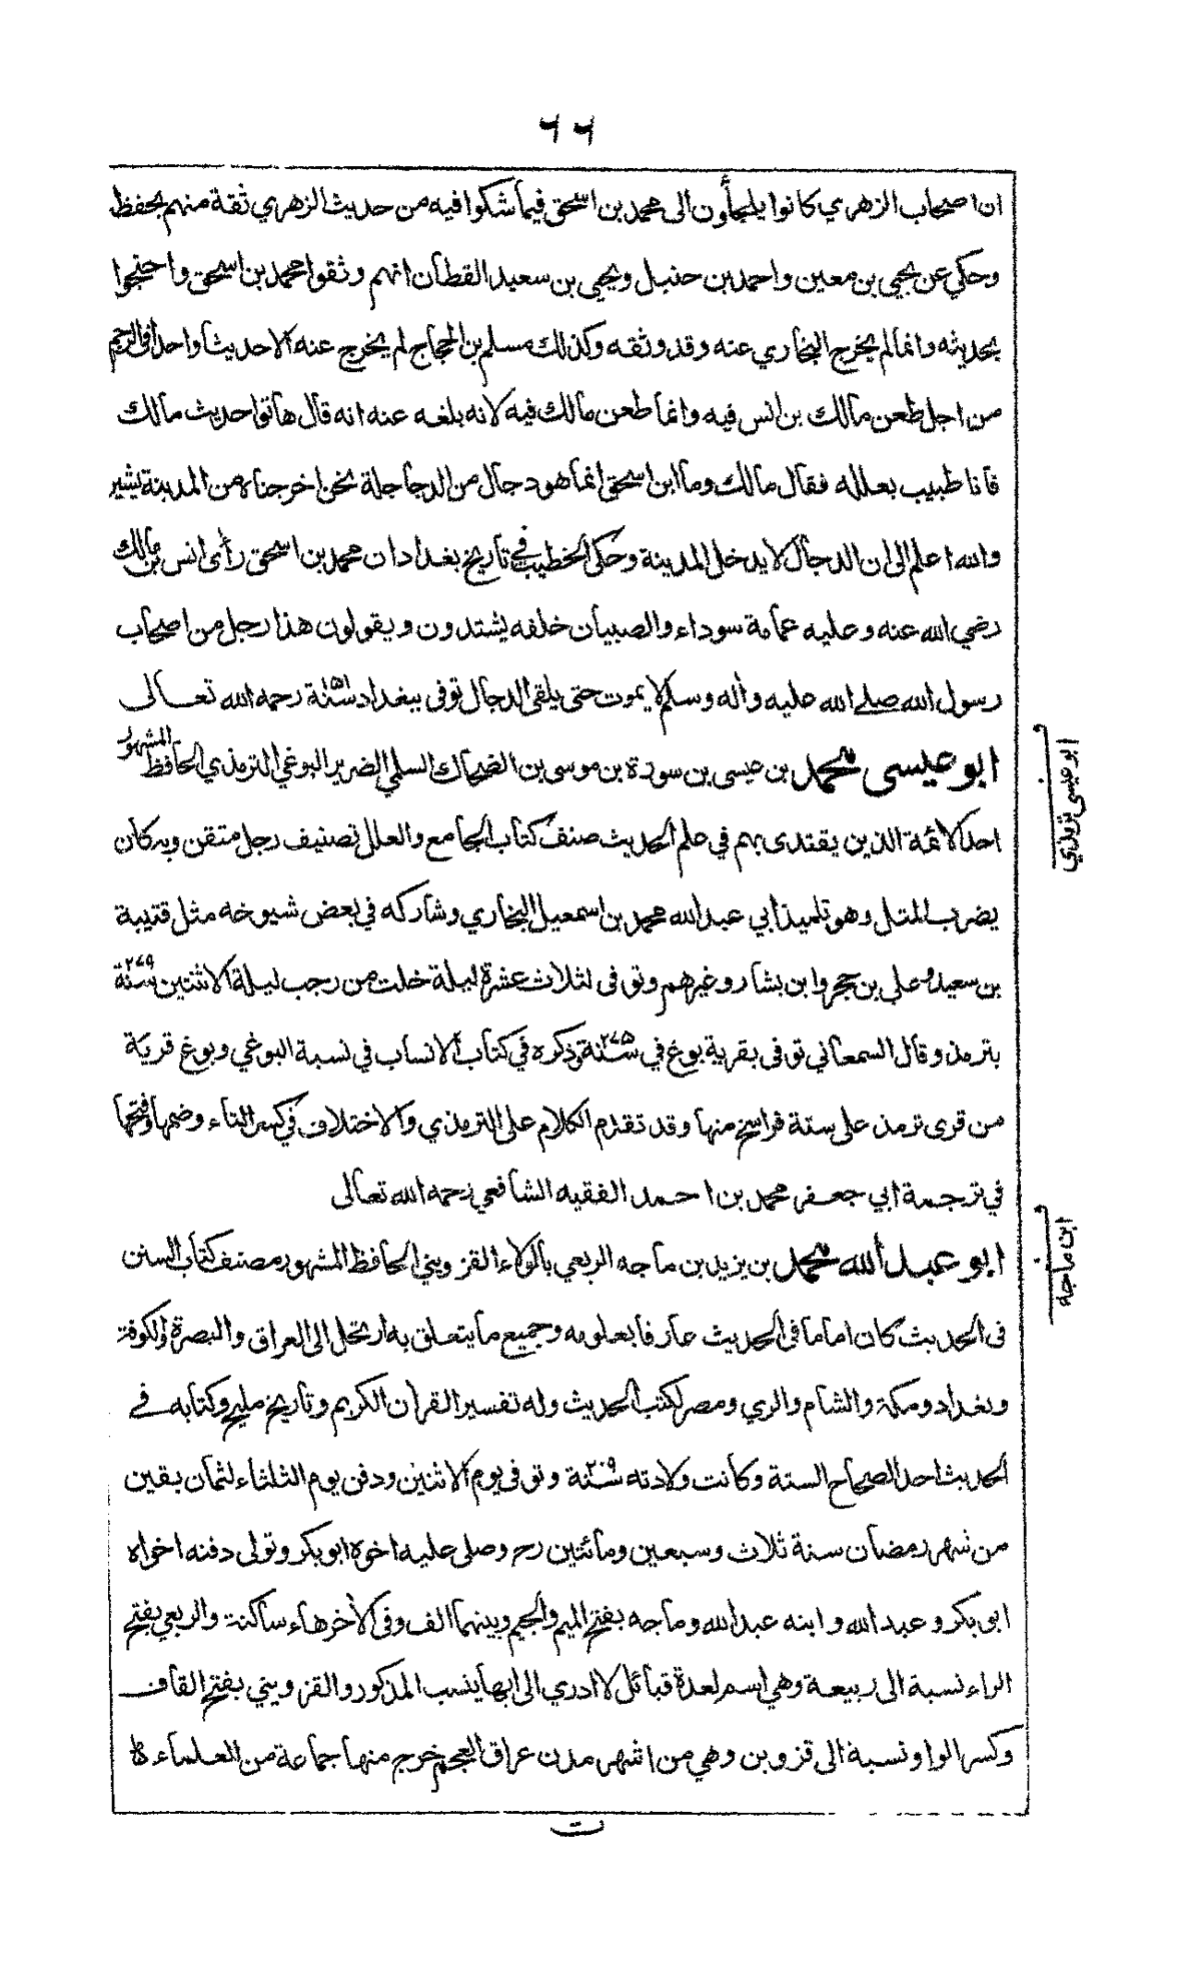 ٦٦
ان اصحاب الزهري كانوا يلجأون الى محمد بن اسحق فيما شكوا فيه من حديث الزهري ثقة منهم بحفظه
وحكي عن يحيى بن معين واحمد بن حنبل ويحيى بن سعيد القطان انهم وثقوا محمد بن اسحق واحتجوا
بحديثه وانما لم يخرج البخاري عنه وقد وثقه وكذلك مسلم بن الحجاج لم يخرج عنه الا حديثا واحدا في الرجم
من اجل طعن مالك بن انس فيه وانما طعن مالك فيه لانه بلغه عنه انه قال هاتوا حديث مالك
فانا طبيب بعلله فقال مالك وما ابن اسحق انما هو دجال من الدجاجلة نحن اخرجناه من المدينة يشير
والله اعلم الى ان الدجال لا يدخل المدينة وحكى الخطيب في تاريخ بغداد ان محمد بن اسحق رأى انس بن مالك
رضي الله عنه وعليه عمامة سوداء والصبيان خلفه يشتدون ويقولون هذا رجل من اصحاب
رسول الله صلے الله عليه وأله وسلم لا يموت حتى يلقى الدجال توفى ببغداد سنة ١٥١ رحمه الله تعالى
ابو عيسى محمد بن عيسى بن سورة بن موسى بن الضحاك السلمي الضرير البوغي الترمذي الحافظ المشهور
احد الائمة الذين يقتدى بهم في علم الحديث صنف كتاب الجامع والعلل تصنيف رجل متقن وبه كان
يضرب المثل وهو تلميذ ابي عبد الله محمد بن اسمعيل البخاري وشاركه في بعض شيوخه مثل قتيبة
بن سعيد وعلي بن حجر وابن بشار وغيرهم وتوفى لثلاث عشرة ليلة خلت من رجب ليلة الاثنين سنة ٢٧٩
بترمذ وقال السمعاني توفى بقرية بوغ في سنة ٢٧٥ وذكره في كتاب الانساب في نسبة البوغي وبوغ قرية
من قرى ترمذ على ستة فراسخ منها وقد تقدم الكلام على الترمذي والاختلاف في كسر التاء وضمها وفتحها
في ترجمة ابي جعفر محمد بن احمد الفقيه الشافعي رحمه الله تعالى
ابو عبد الله محمد بن يزيد بن ماجه الربعي بالولاء القزويني الحافظ المشهور مصنف كتاب السنن
فى الحديث كان اماما فى الحديث عارفا بعلومه وجميع ما يتعلق به ارتحل الى العراق والبصرة والكوفة
وبغداد ومكة والشام والري ومصر لكتب الحديث وله تفسير القرأن الكريم وتاريخ مليح وكتابه في
الحديث احد الصحاح الستة وكانت ولادته سنة ٢٠٩ وتوفى يوم الاثنين ودفن يوم الثلثاء لثمان بقين
من شهر رمضان سنة ثلاث وسبعين ومائتين رح وصلى عليه اخوه ابو بكر وتولى دفنه اخواه
ابو بكر وعبد الله وابنه عبد الله وماجه بفتح الميم والجيم وبينهما الف وفى الأخر هاء ساكنة والربعي بفتح
الراء نسبة الى ربيعة وهي اسم لعدة قبائل لا ادري الى ايها ينسب المذكور والقزويني بفتح القاف
وكسر الواو نسبة الى قزوين وهي من اشهر مدن عراق العجم خرج منها جماعة من العلماء
ت
ابو عيسى ترمذي
ابن ماجه